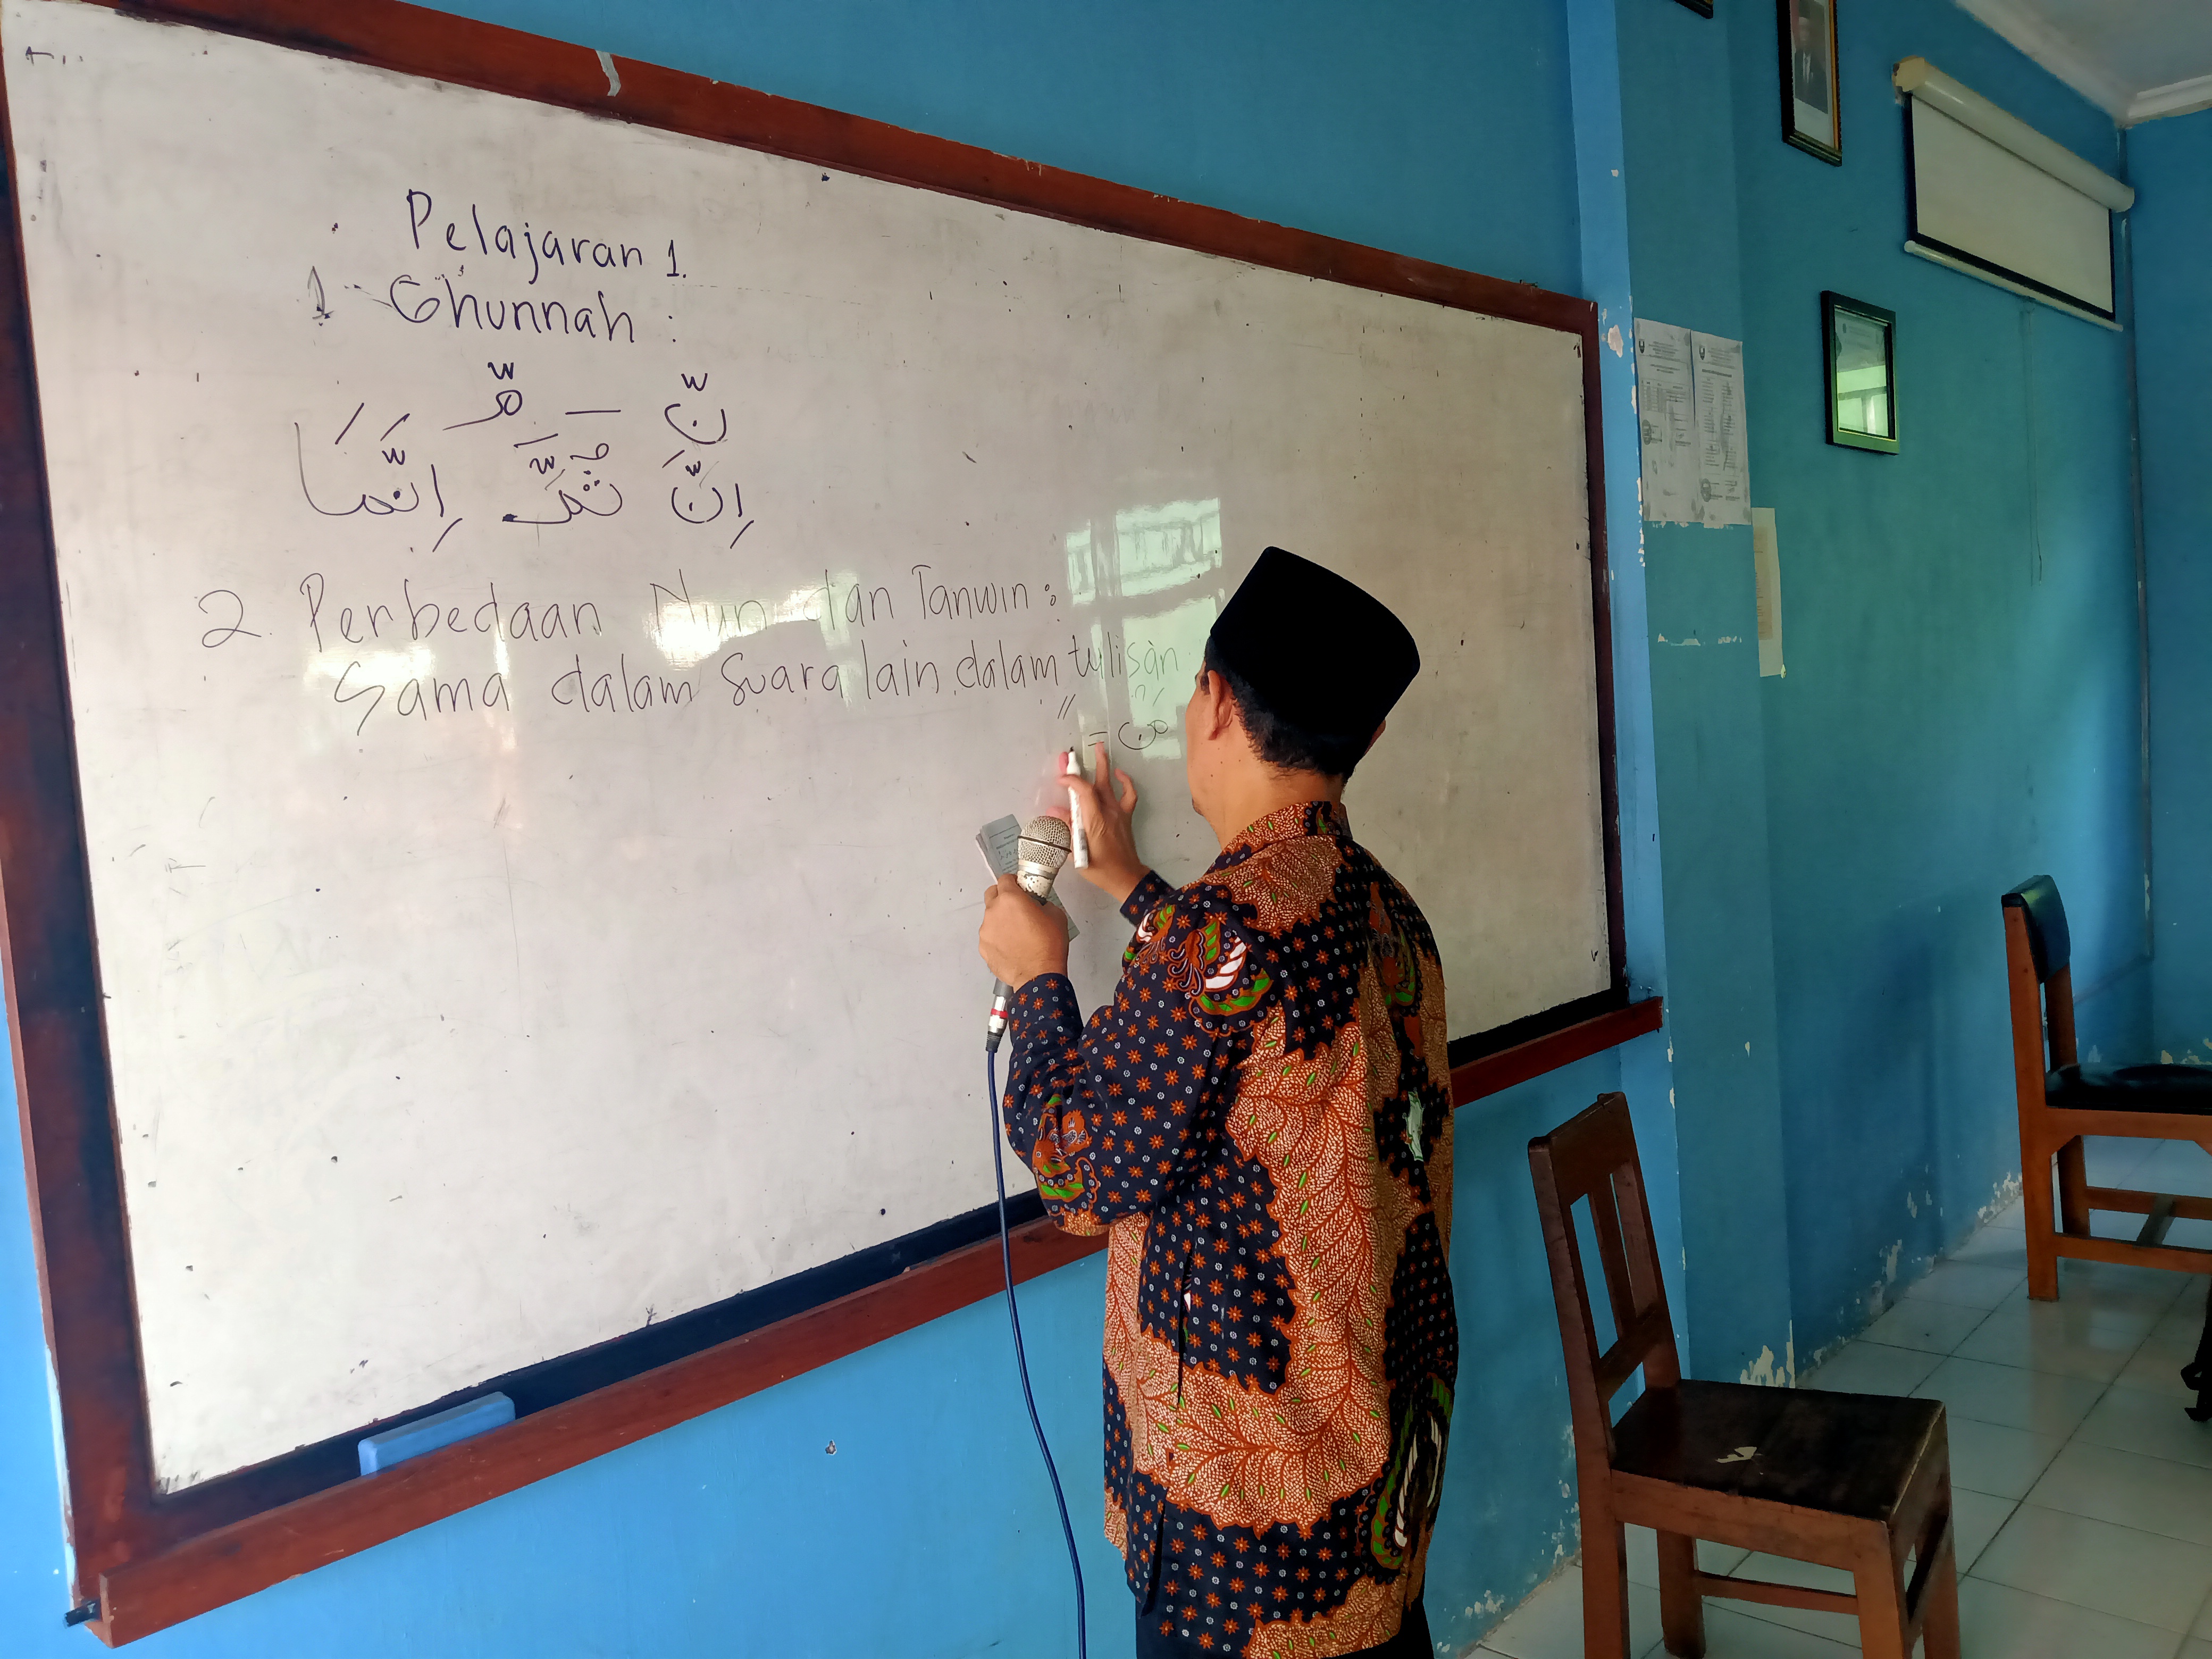 Pelajaran 1.
1 Ghunnah :
نّ – مّ
اِنَّ ثُمَّ اِنَّمَا
2. Perbedaan Nun dan Tanwin :
Sama dalam suara lain dalam tulisan
= نْ